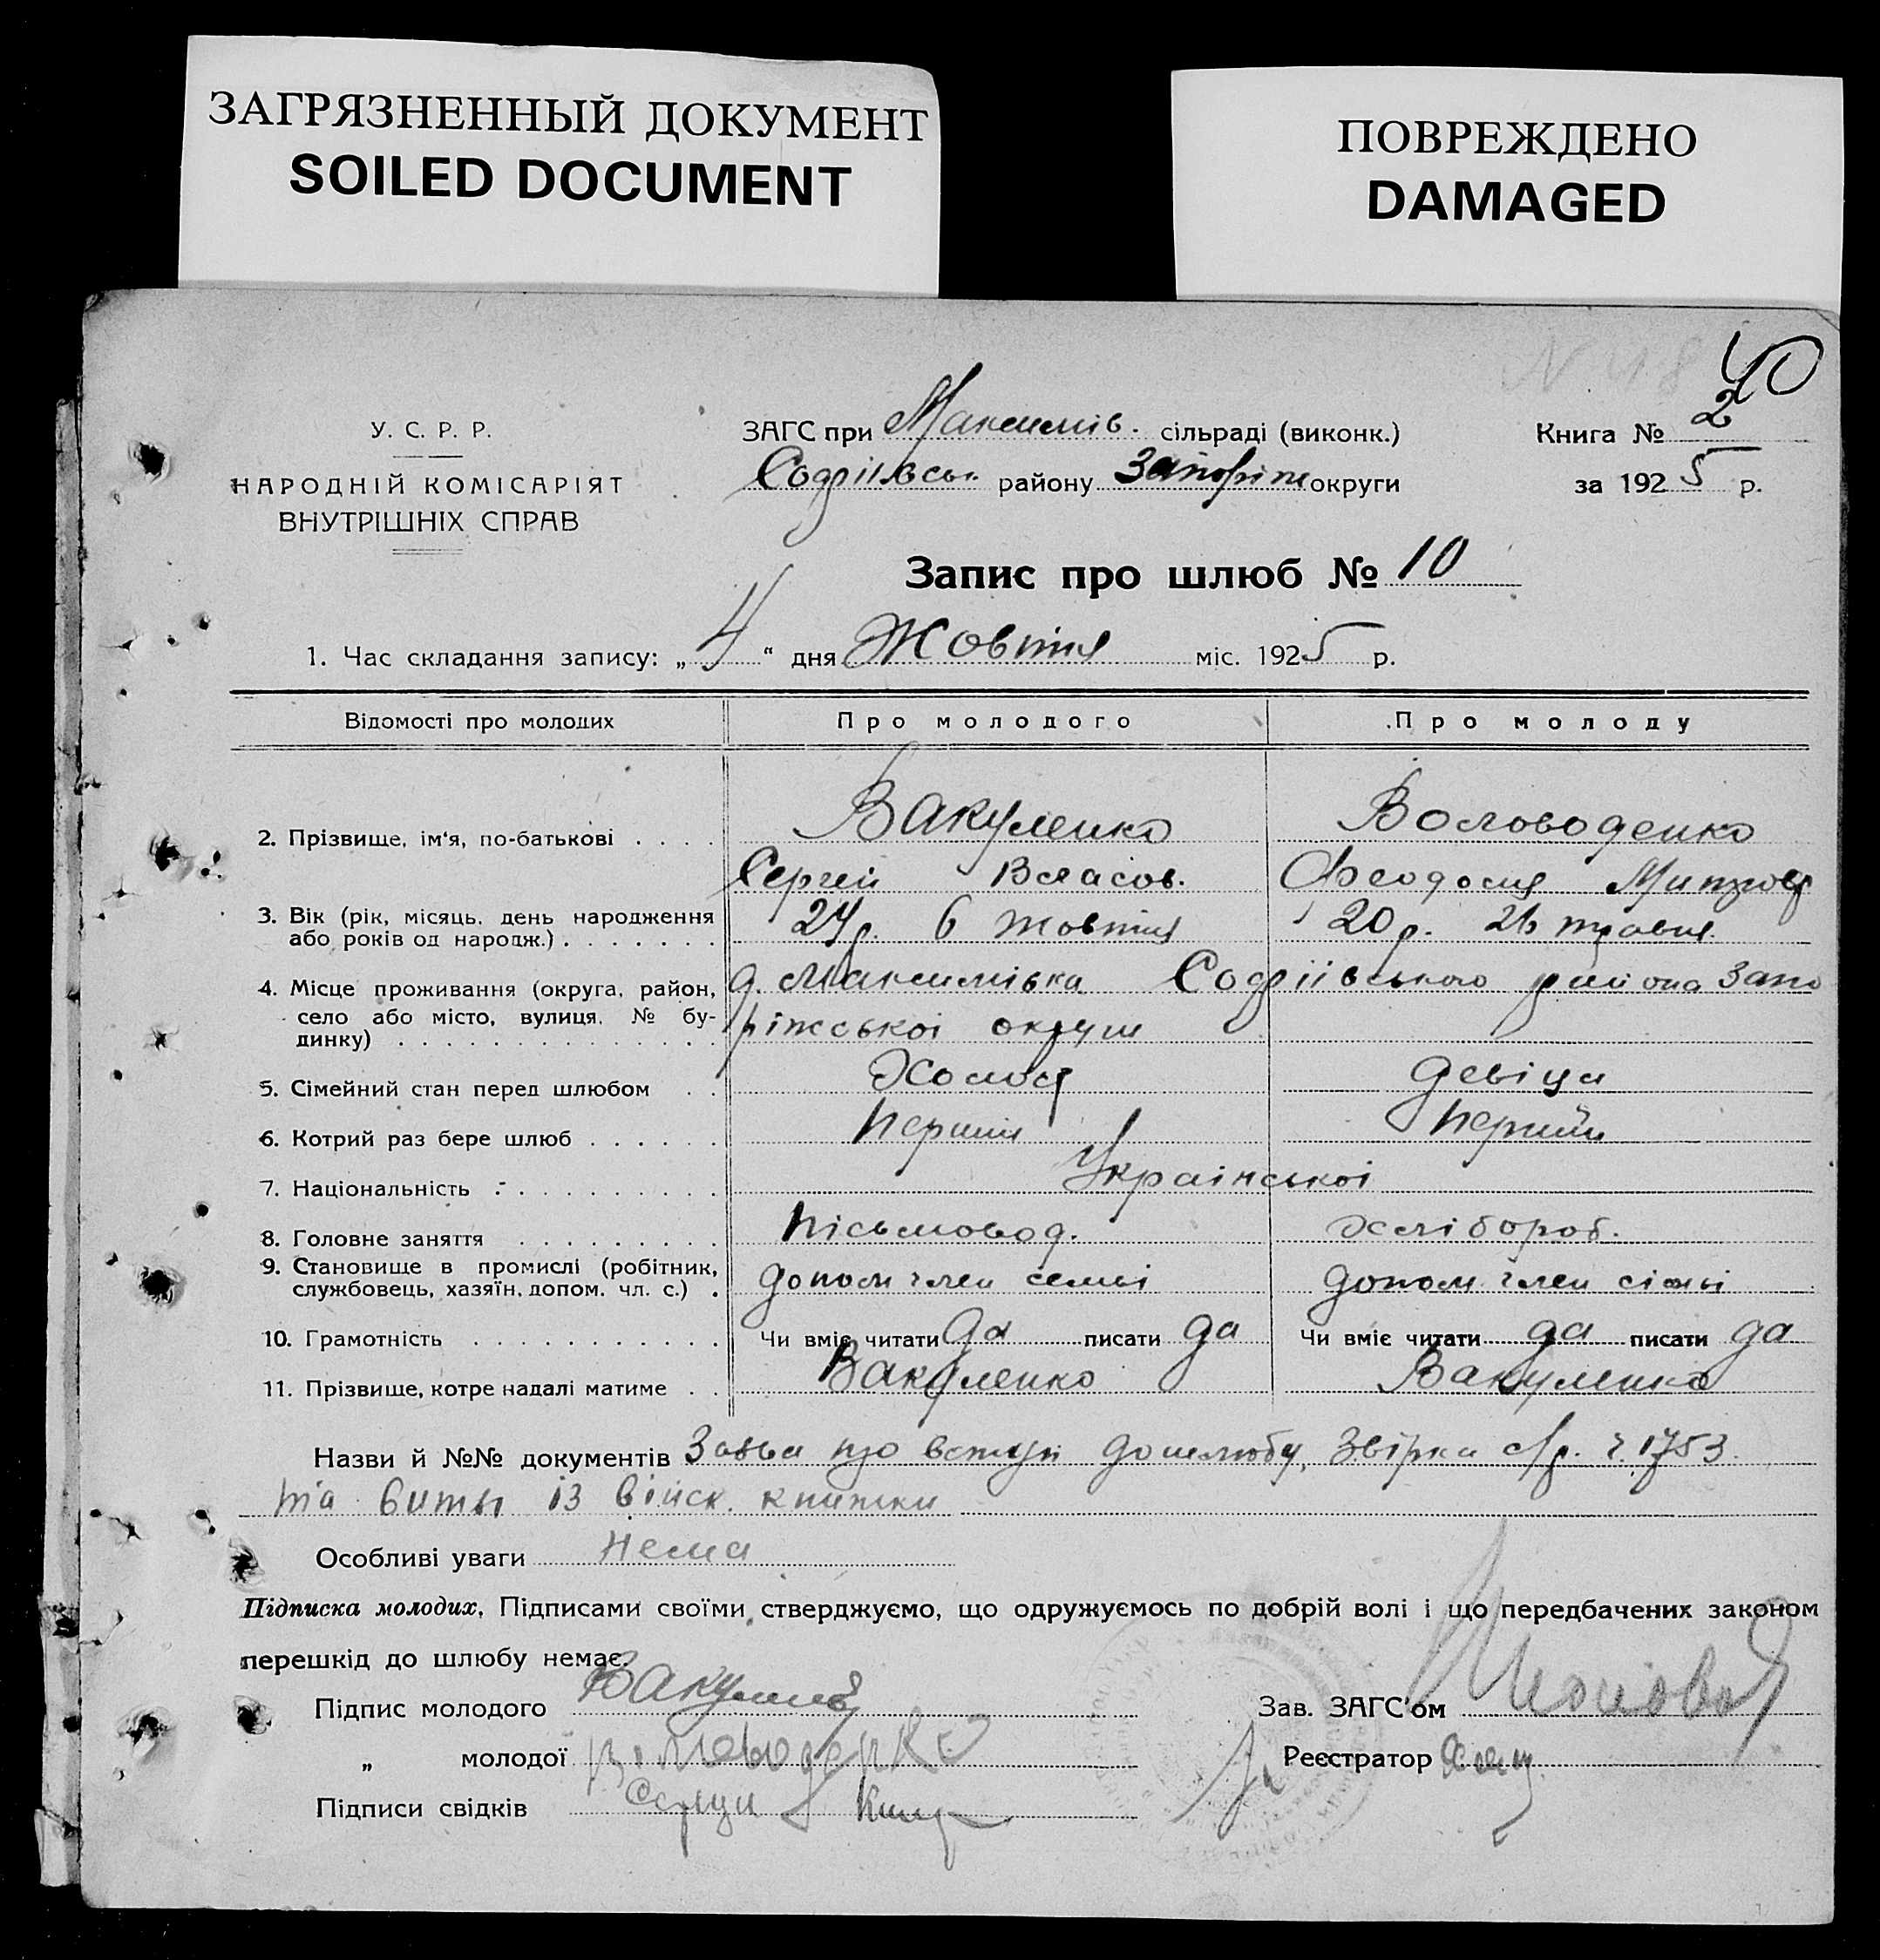 ЗАГРЯЗНЕННЫЙ ДОКУМЕНТ
SOILED DOCUMENT
ПОВРЕЖДЕНО
DAMAGED
40
У. С. Р. Р.
НАРОДНІЙ КОМІСАРІЯТ
ВНУТРІШНІХ СПРАВ
ЗАГС при Максимів. сільраді (виконк.)
Софіївськ. району Запоріж округи
Книга № 2
за 1925 р.
Запис про шлюб № 10
1. Час складання запису: „4“ дня Жовтня міс. 1925 р.
Відомості про молодих Про молодого Про молоду
2. Прізвище, ім'я, по-батькові . . . . Вакуленко Воловоденко
Сергій Власов. Феодосія Митроф
3. Вік (рік, місяць, день народження 24 р. 6 жовтня 20 р. 26 травня.
або років од народж.) . . . . . . .
4. Місце проживання (округа, район, д. Максимівка Софіївського района Запо
село або місто, вулиця, № бу- ріжської округи
динку) . . . . . . . . . . . . . .
5. Сімейний стан перед шлюбом . . Холост девіца
6. Котрий раз бере шлюб . . . . . . Перший Перший
7. Національність . . . . . . . . . . Украінськоі
8. Головне заняття . . . . . . . . . Пісьмовод. хлібороб.
9. Становище в промислі (робітник, допом член семьі допом член сімьі
службовець, хазяїн, допом. чл. с.) .
10. Грамотність . . . . . . . . . . . Чи вміє читати да писати да Чи вміє читати да писати да
11. Прізвище, котре надалі матиме . . Вакуленко Вакуленко
Назви й №№ документів Заява про вступ до шлюбу, Звірка с/р. ч. 1753.
та витяг із війск. книжки
Особливі уваги нема
Підписка молодих, Підписами своїми стверджуємо, що одружуємось по добрій волі і що передбачених законом
перешкід до шлюбу немає.
Підпис молодого Вакуленко
„ молодої Воловоденко
Підписи свідків
Зав. ЗАГС'ом
Реєстратор